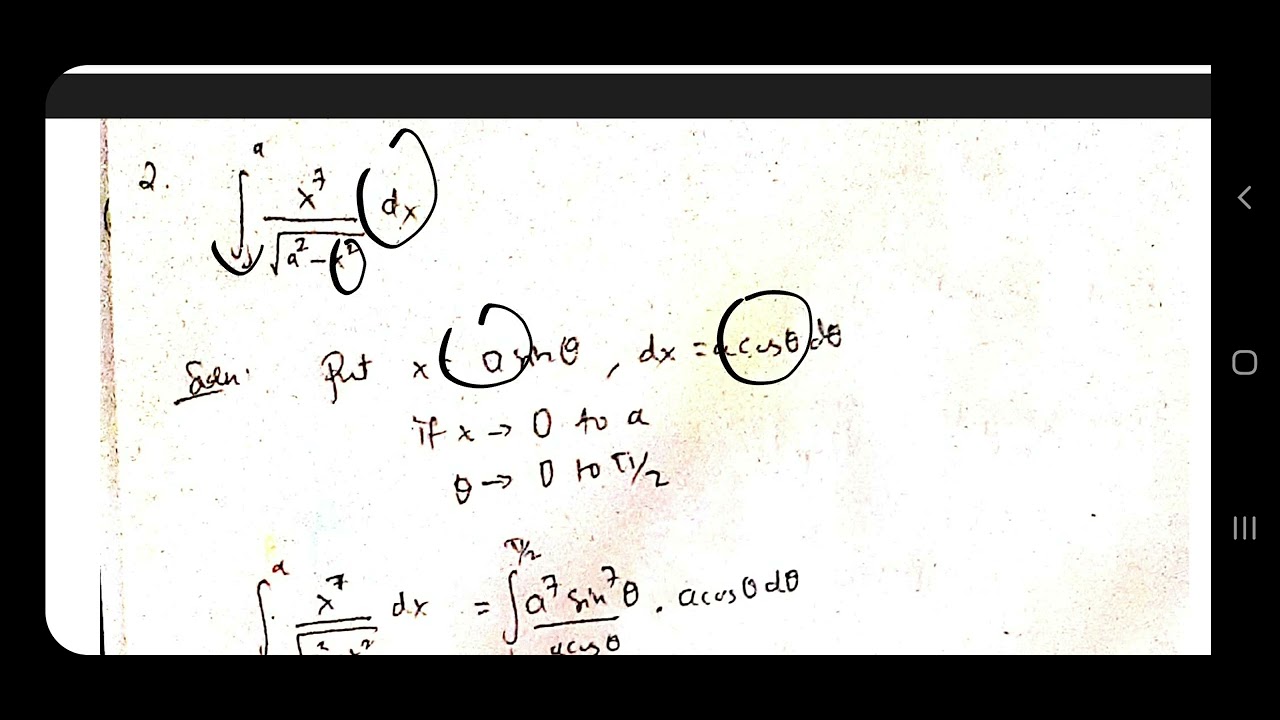 2. ∫₀ᵃ x⁷/√(a² − x²) dx
Soln. Put x = a sinθ , dx = a cosθ dθ
if x → 0 to a
θ → 0 to π/2
∫ᵃ x⁷/√(a² − x²) dx = ∫^π/2 a⁷ sin⁷θ/a cosθ . a cosθ dθ